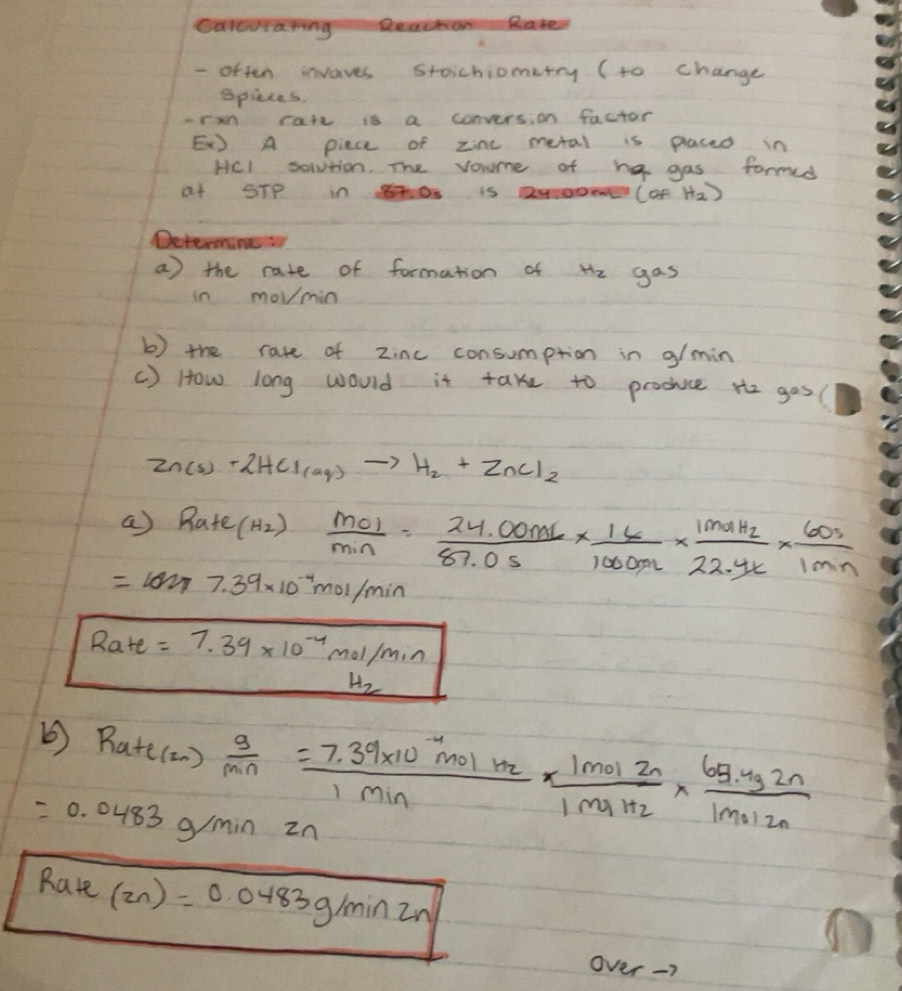 Calculating Reaction Rate
- Often invoves Stoichiometry (to change
Spieces.
- rxn rate is a conversion factor
Ex) A piece of zinc metal is placed in
HCl solution. The volume of gas formed
at STP in 87.0s is 24.00mL (of H2)
Determine:
a) the rate of formation of H2 gas
in mol/min
b) the rate of zinc consumption in g/min
c) How long would it take to produce H2 gas (
Zn(s) + 2HCl(aq) → H2 + ZnCl2
a) Rate(H2) mol/min = 24.00mL/87.0s × 1L/1000mL × 1mol H2/22.4L × 60s/1min
= 7.39×10⁻⁴ mol/min
Rate = 7.39 × 10⁻⁴ mol/min
H2
b) Rate(zn) g/min = 7.39×10⁻⁴ mol H2/1 min × 1mol Zn/1mol H2 × 65.4g Zn/1mol zn
= 0.0483 g/min zn
Rate (zn) = 0.0483 g/min zn
Over →